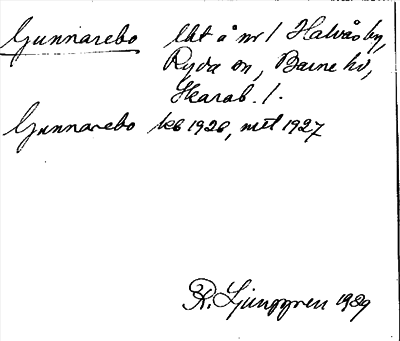 Gunnarebo lht å nr 1 Halvås by,
Ryda sn, Barne hd,
Skarab. l.
Gunnarebo keb 1926, mtl 1927
R. Ljunggren 1929